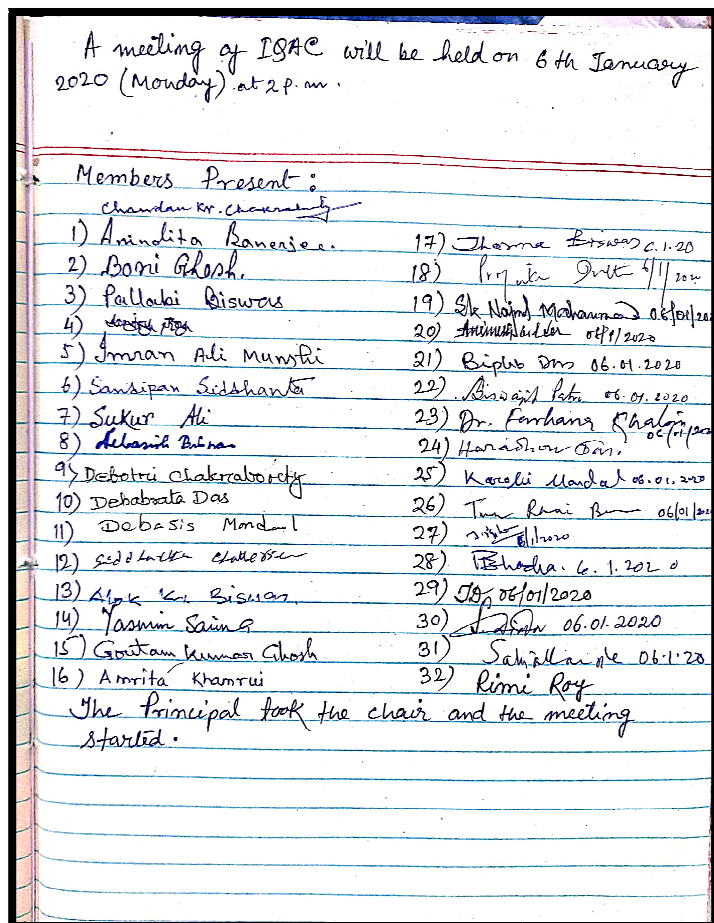 A meeting of IQAC will be held on 6th January
2020 (Monday) at 2 p.m.
Members Present :
Chandan Kr. Chakraborty
1) Anindita Banerjee.
2) Boni Ghosh.
3) Pallabi Biswas
4)
5) Imran Ali Munshi
6) Sansipan Siddhanta
7) Sukur Ali
8) Debasish Biswas
9) Debotri Chakraborty
10) Debabrata Das
11) Debasis Mondal
12) Siddhartha Chatterjee
13) Alok Kr. Biswas
14) Yasmin Saima
15) Goutam Kumar Ghosh
16) Amrita Khamrui
17) Jharna Biswas 6.1.20
18) Dutt 6/1/2020
19) Sk Najmul Mohammad 06/01/20
20) 06/1/2020
21) Biplab Das 06.01.2020
22) Biswajit Patra 06.01.2020
23) Dr. Farhana Khatoon 06/01/20
24) Haradhan Das.
25) Karabi Mandal 06.01.2020
26) 06/01/20
27) 6/1/2020
28) 6.1.2020
29) 06/01/2020
30) 06.01.2020
31) 06.1.20
32) Rimi Roy
The Principal took the chair and the meeting
started.